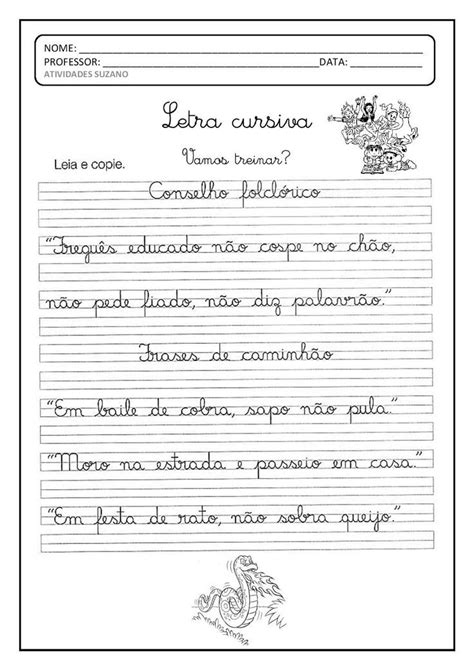 NOME: ______________________________
PROFESSOR: ______________________________DATA: ____________
ATIVIDADES SUZANO
Letra cursiva
Vamos treinar?
Leia e copie.
Conselho folclórico
“Freguês educado não cospe no chão,
não pede fiado, não diz palavrão.”
Frases de caminhão
“Em baile de cobra, sapo não pula.”
“Moro na estrada e passeio em casa.”
“Em festa de rato, não sobra queijo.”